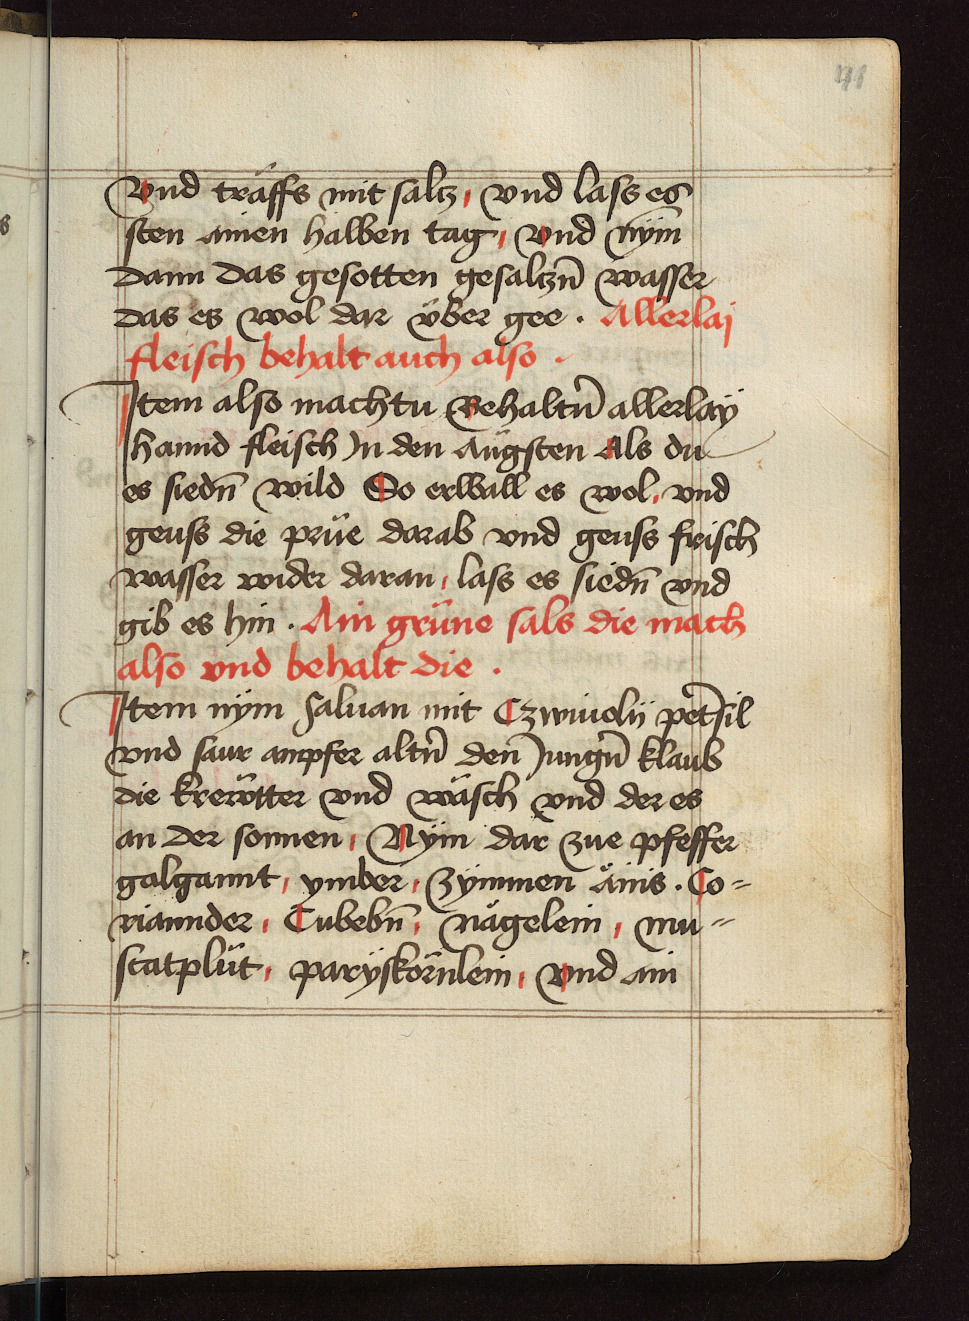 Vnd träffs mit saltz, vnd lass es
sten ainen halben tag, vnd nÿm
dann das gesotten gesaltzn̄ wasser
das es wol dar über gee. Allerlaj
fleisch behalt auch also.
Item also machtu Behaltn̄ allerlaÿ
hannd fleisch Jn den Augsten Als du
es siedn̄ wild So erwall es wol, vnd
geuss die prüe darab vnd geuss frisch
wasser wider daran, lass es siedn̄ vnd
gib es hin. Ain grüne sals die mach
also vnd behalt die.
Item nÿm saluan mit Czwiuolii pet̄sil
vnd saur ampfer altn̄ den Jungn̄ klaub
die krewtter vnd wäsch vnd der es
an der sonnen, Nÿm dar zue pfeffer
galgannt, ymber, zymmen änis. Co=
riannder, Cubebn̄, nägelein, mu=
scatplüt, parÿskörnlein, vnd ain